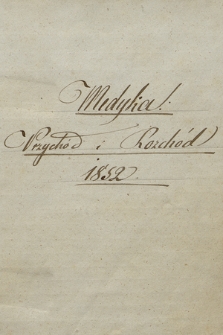 Medyka!
Przychód i Rozchód
1852.